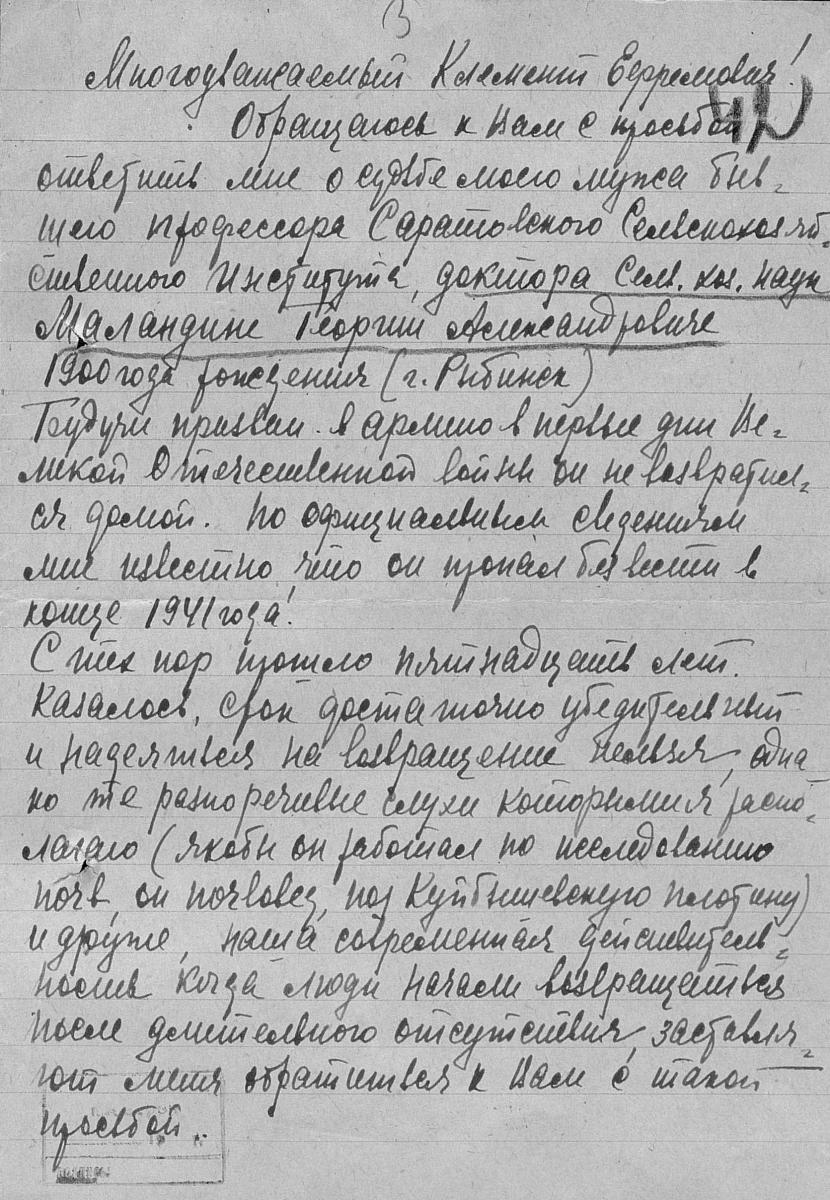 3
Многоуважаемый Климент Ефремович!
42
Обращаюсь к Вам с просьбой
ответить мне о судьбе моего мужа быв-
шего профессора Саратовского Сельскохозяй-
ственного Института, доктора Сельк. хоз. наук
Маландине Георгии Александровиче
1900 года рождения (г. Рыбинск)
Будучи призван в армию в первые дни Ве-
ликой Отечественной войны он не возвратил-
ся домой. По официальным сведениям
мне известно, что он пропал без вести в
конце 1941 года!
С тех пор прошло пятнадцать лет.
Казалось, срок достаточно убедительный
и надеяться на возвращение нельзя, одна-
ко те разноречивые слухи которыми я распо-
лагаю (якобы он работал по исследованию
почв, он почвовед, под Куйбышевскую плотину)
и другие, наша современная действитель-
ность когда люди начали возвращаться
после длительного отсутствия, заставля-
ют меня обратиться к Вам с такой
просьбой.